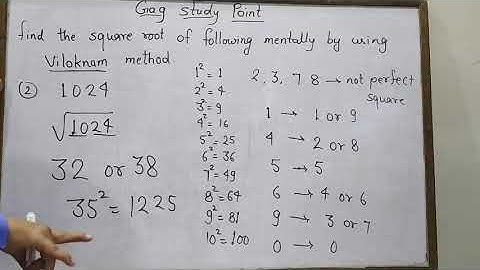 Gag Study Point
find the square root of following mentally by using
Viloknam method
② 1024
√1024
32 or 38
35² = 1225
1² = 1
2² = 4
3² = 9
4² = 16
5² = 25
6² = 36
7² = 49
8² = 64
9² = 81
10² = 100
2, 3, 7, 8 → not perfect
square
1 → 1 or 9
4 → 2 or 8
5 → 5
6 → 4 or 6
9 → 3 or 7
0 → 0